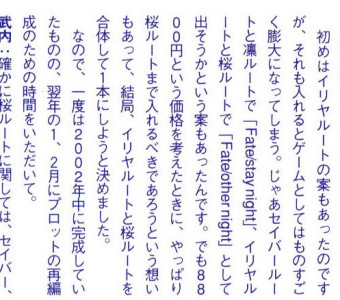 初めはイリヤルートの案もあったのです
が、それも入れるとゲームとしてはものすご
く膨大になってしまう。じゃあセイバールー
トと凛ルートで「Fate/stay night」、イリヤル
ートと桜ルートで「Fate/other night」として
出そうかという案もあったんです。でも88
00円という価格を考えたときに、やっぱり
桜ルートまで入れるべきであろうという想い
もあって、結局、イリヤルートと桜ルートを
合体して1本にしようと決めました。
なので、一度は2002年中に完成してい
たものの、翌年の1、2月にプロットの再編
成のための時間をいただいて。
武内：確かに桜ルートに関しては、セイバー、